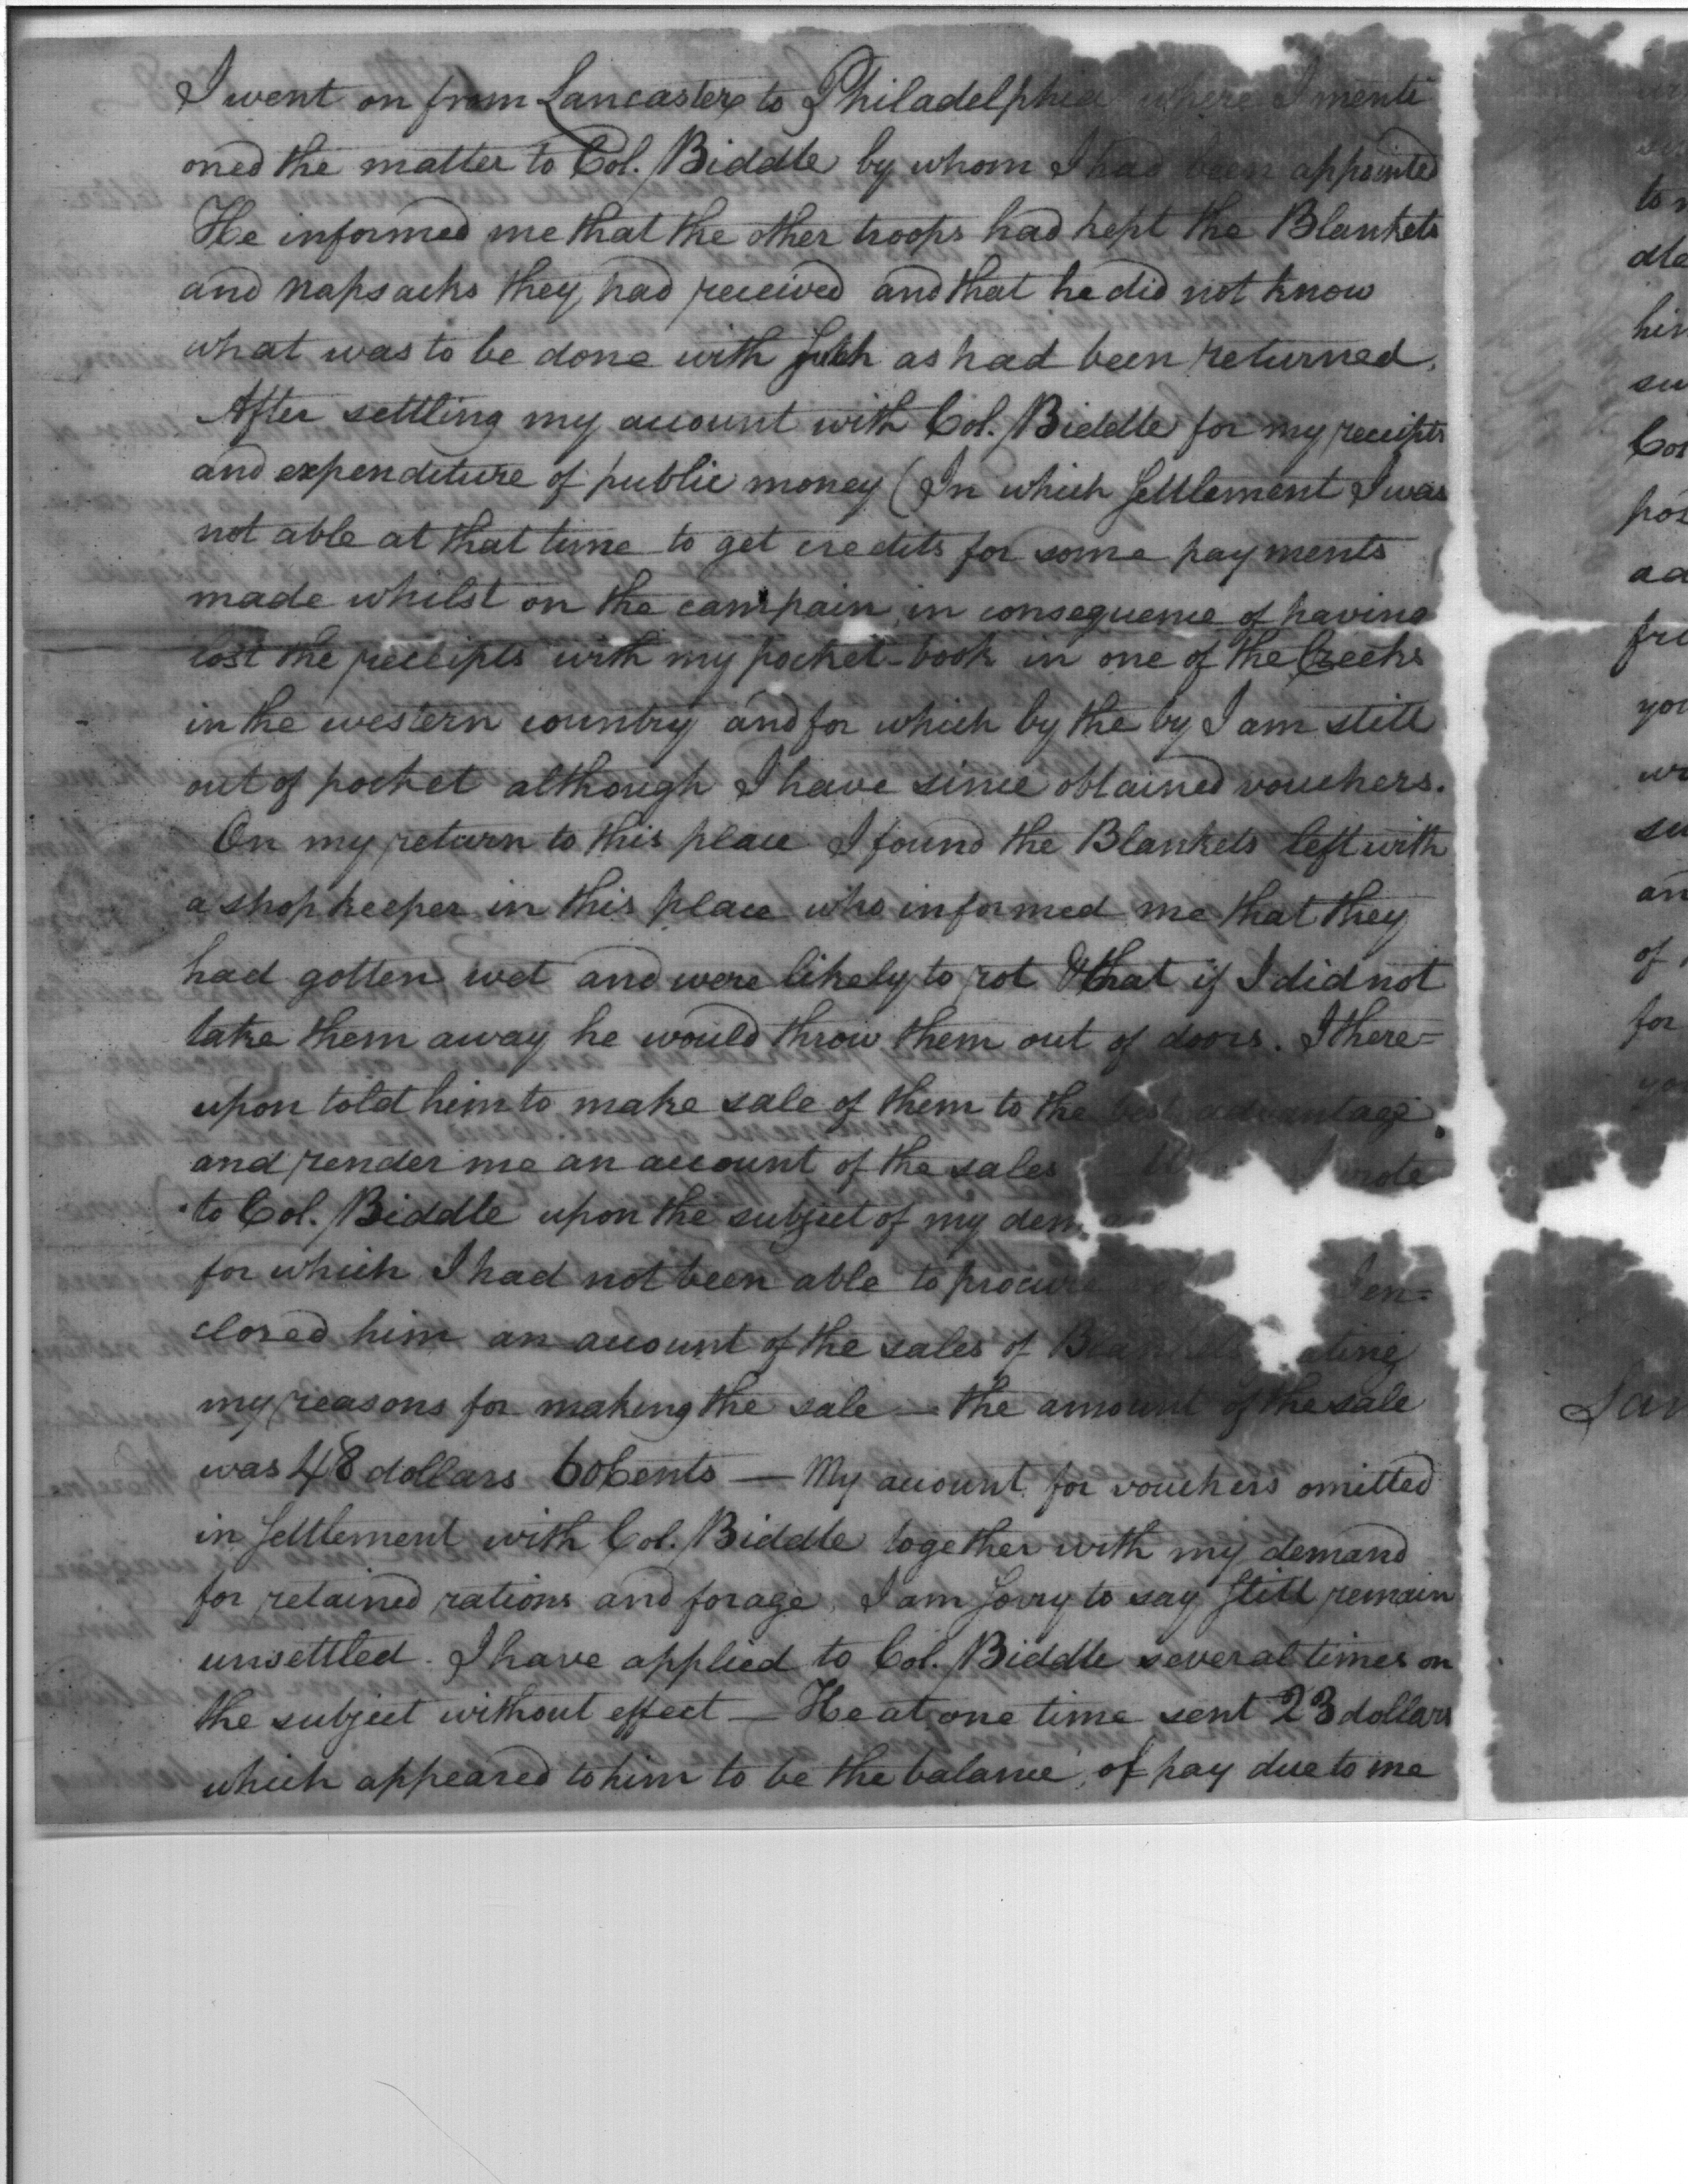 I went on from Lancaster to Philadelphia where I menti
oned the matter to Col. Biddle by whom I had been appointed
He informed me that the other troops had kept the Blankets
and napsacks they had received and that he did not know
what was to be done with such as had been returned.
After settling my account with Col. Biddle for my receipts
and expenditure of public money (In which settlement I was
not able at that time to get credits for some payments
made whilst on the campain in consequence of having
lost the receipts with my pocket-book in one of the Creeks
in the western country and for which by the by I am still
out of pocket although I have since obtained vouchers.
On my return to this place I found the Blankets left with
a shopkeeper in this place who informed me that they
had gotten wet and were likely to rot & that if I did not
take them away he would throw them out of doors. I there=
upon told him to make sale of them to the best advantage
and render me an account of the sales wrote
to Col. Biddle upon the subject of my
for which I had not been able to procure I en=
closed him an account of the sales of Blankets
my reasons for making the sale — the amount of the sale
was 48 dollars 60 Cents — My account for vouchers omitted
in settlement with Col. Biddle together with my demand
for retained rations and forage, I am sorry to say still remain
unsettled. I have applied to Col. Biddle several times on
the subject without effect — He at one time sent 23 dollars
which appeared to him to be the balance of pay due to me